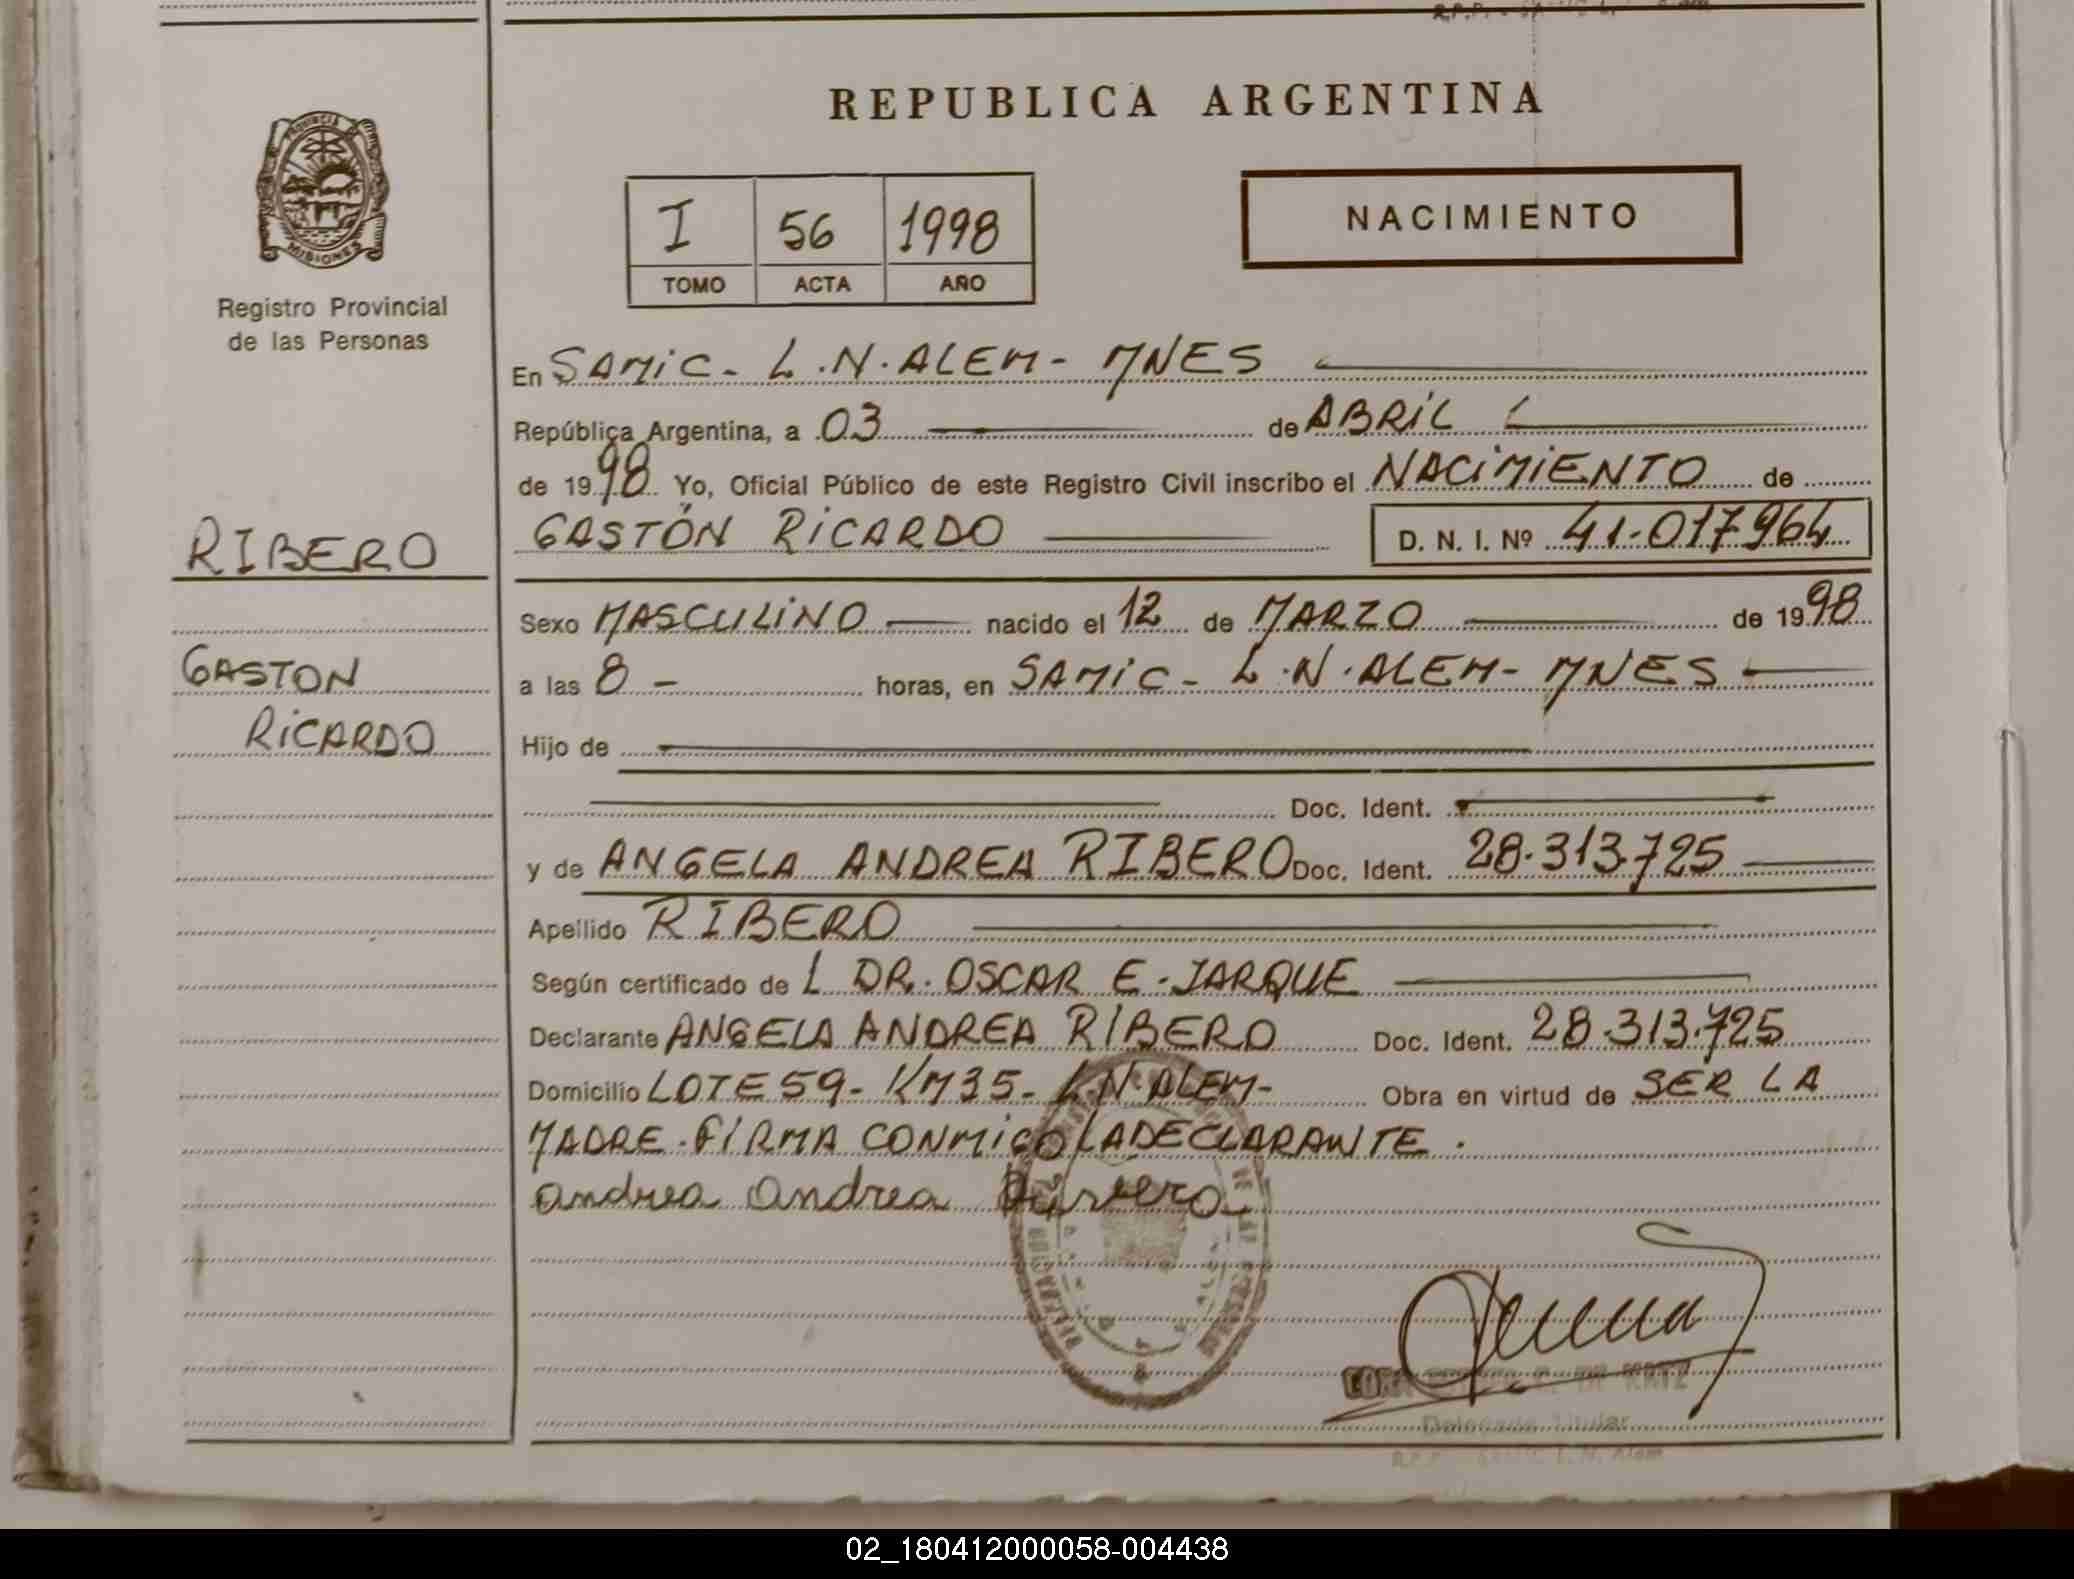 REPUBLICA ARGENTINA
PROVINCIA DE
MISIONES
Registro Provincial
de las Personas
I 56 1998
TOMO ACTA AÑO
NACIMIENTO
En SAMIC - L.N. ALEM - MNES
República Argentina, a 03 de ABRIL
de 1998 Yo, Oficial Público de este Registro Civil inscribo el NACIMIENTO de
RIBERO
GASTÓN RICARDO D. N. I. Nº 41.017964
Sexo MASCULINO nacido el 12 de MARZO de 1998
GASTON
RICARDO
a las 8 - horas, en SAMIC - L.N. ALEM - MNES
Hijo de
Doc. Ident.
y de ANGELA ANDREA RIBERO Doc. Ident. 28.313.725
Apellido RIBERO
Según certificado de L DR. OSCAR E. JARQUE
Declarante ANGELA ANDREA RIBERO Doc. Ident. 28.313.725
Domicilio LOTE 59 - KM 35 - L.N. ALEM - Obra en virtud de SER LA
MADRE. FIRMA CONMIGO LA DECLARANTE.
andrea andrea Rivero
Delegada Titular
L. N. Alem
02_180412000058-004438